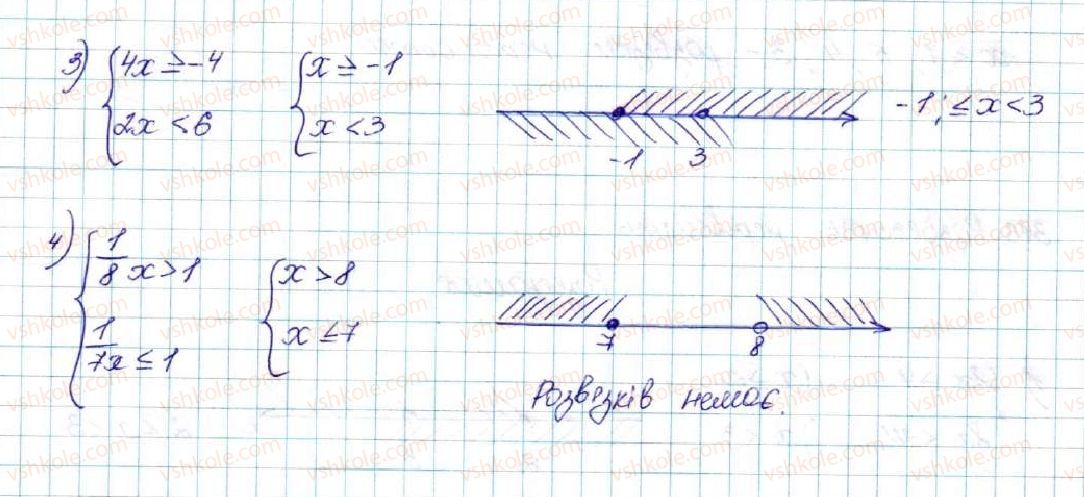 3) { 4x ≥ -4 { x ≥ -1
2x < 6 x < 3
-1 3
-1; ≤ x < 3
4) { 1/8 x > 1 { x > 8
1/7x ≤ 1 x ≤ 7
7 8
Розвєзків немає.
vshkole.com